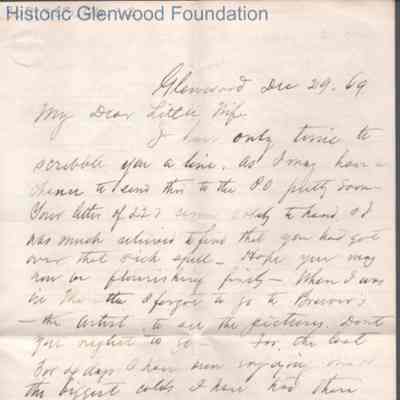 Historic Glenwood Foundation
Glenwood Dec 29. 69
My Dear Little Wife
I have only time to
scribble you a line. As I may have a
chance to send this to the P.O. pretty soon
Your letter of 22d came to hand, & I
was much relieved to find that you had got
over that sick spell – Hope you may
now be flourishing finely – When I was
I forgot to go to
– the Artist, to see the pictures. Dont
you neglect to go – For the last
For 4 days I have been enjoying one of
the biggest colds I have had there